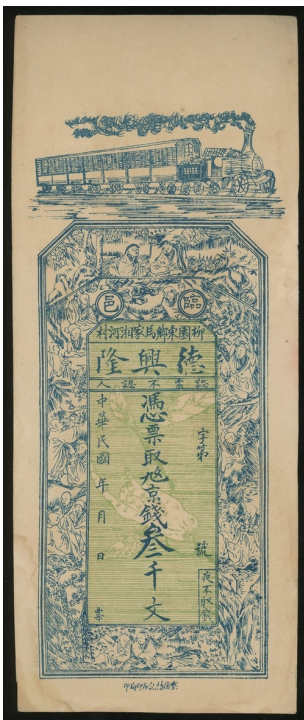 臨邑
柳團東鄉馬家湘河村
德興隆
認票不認人
字第 號
憑票取兌京錢叁千文
中華民國 年 月 日 票
夜不收錢